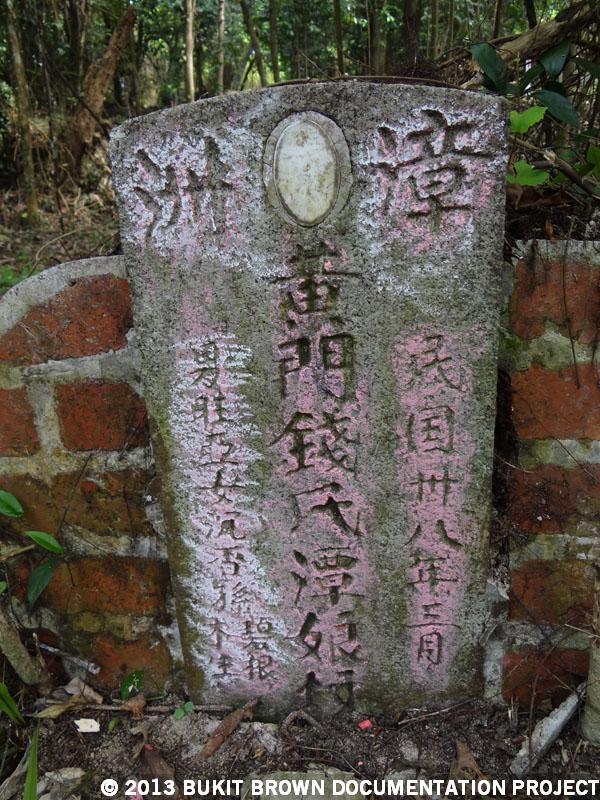 漳洲
民国卅八年三月
黃門錢氏潭娘
男旺亞女沉否孫
碧根
木生
© 2013 BUKIT BROWN DOCUMENTATION PROJECT